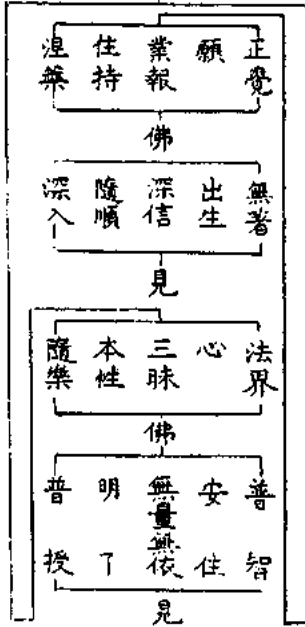 正覺
願
業報
住持
涅槃
佛
無著
出生
深信
隨順
深入
見
法界
心
三昧
本性
隨樂
佛
普智
安住
無量無依
明了
普授
見